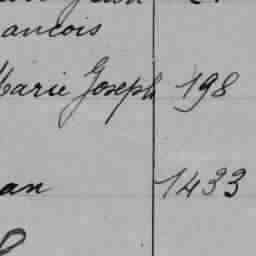 ancois
Marie Joseph 198
an 1433